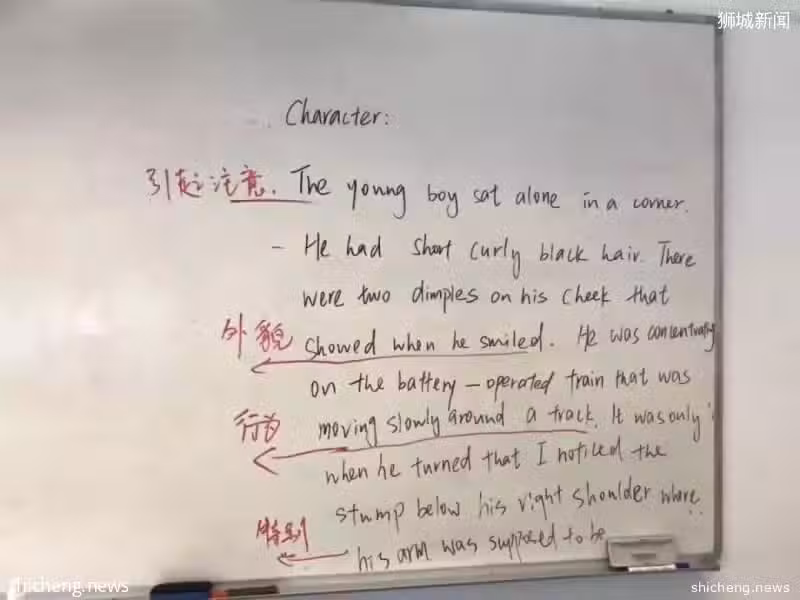 狮城新闻
Character:
引起注意. The young boy sat alone in a corner.
- He had short curly black hair. There
were two dimples on his cheek that
外貌 showed when he smiled. He was concentrating
on the battery-operated train that was
行为 moving slowly around a track. It was only
when he turned that I noticed the
stump below his right shoulder where
特别 his arm was supposed to be
shicheng.news shicheng.news